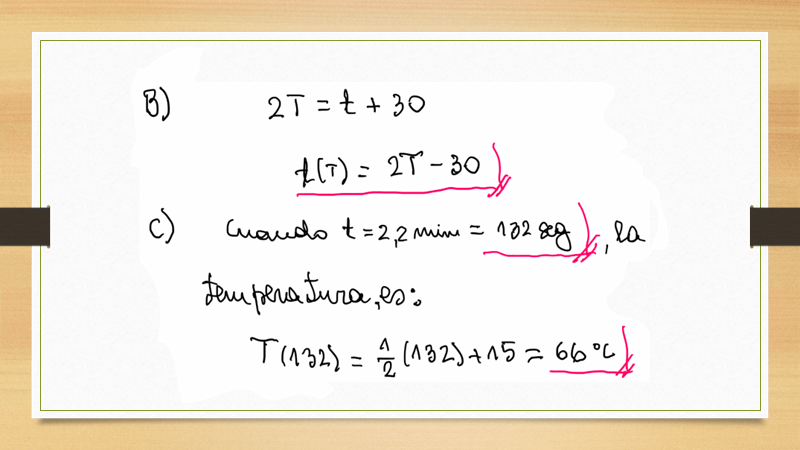 B) 2T = t + 30
t(T) = 2T - 30
C) Cuando t = 2,2 min = 132 seg, la
temperatura, es:
T(132) = 1/2 (132) + 15 = 66 °C